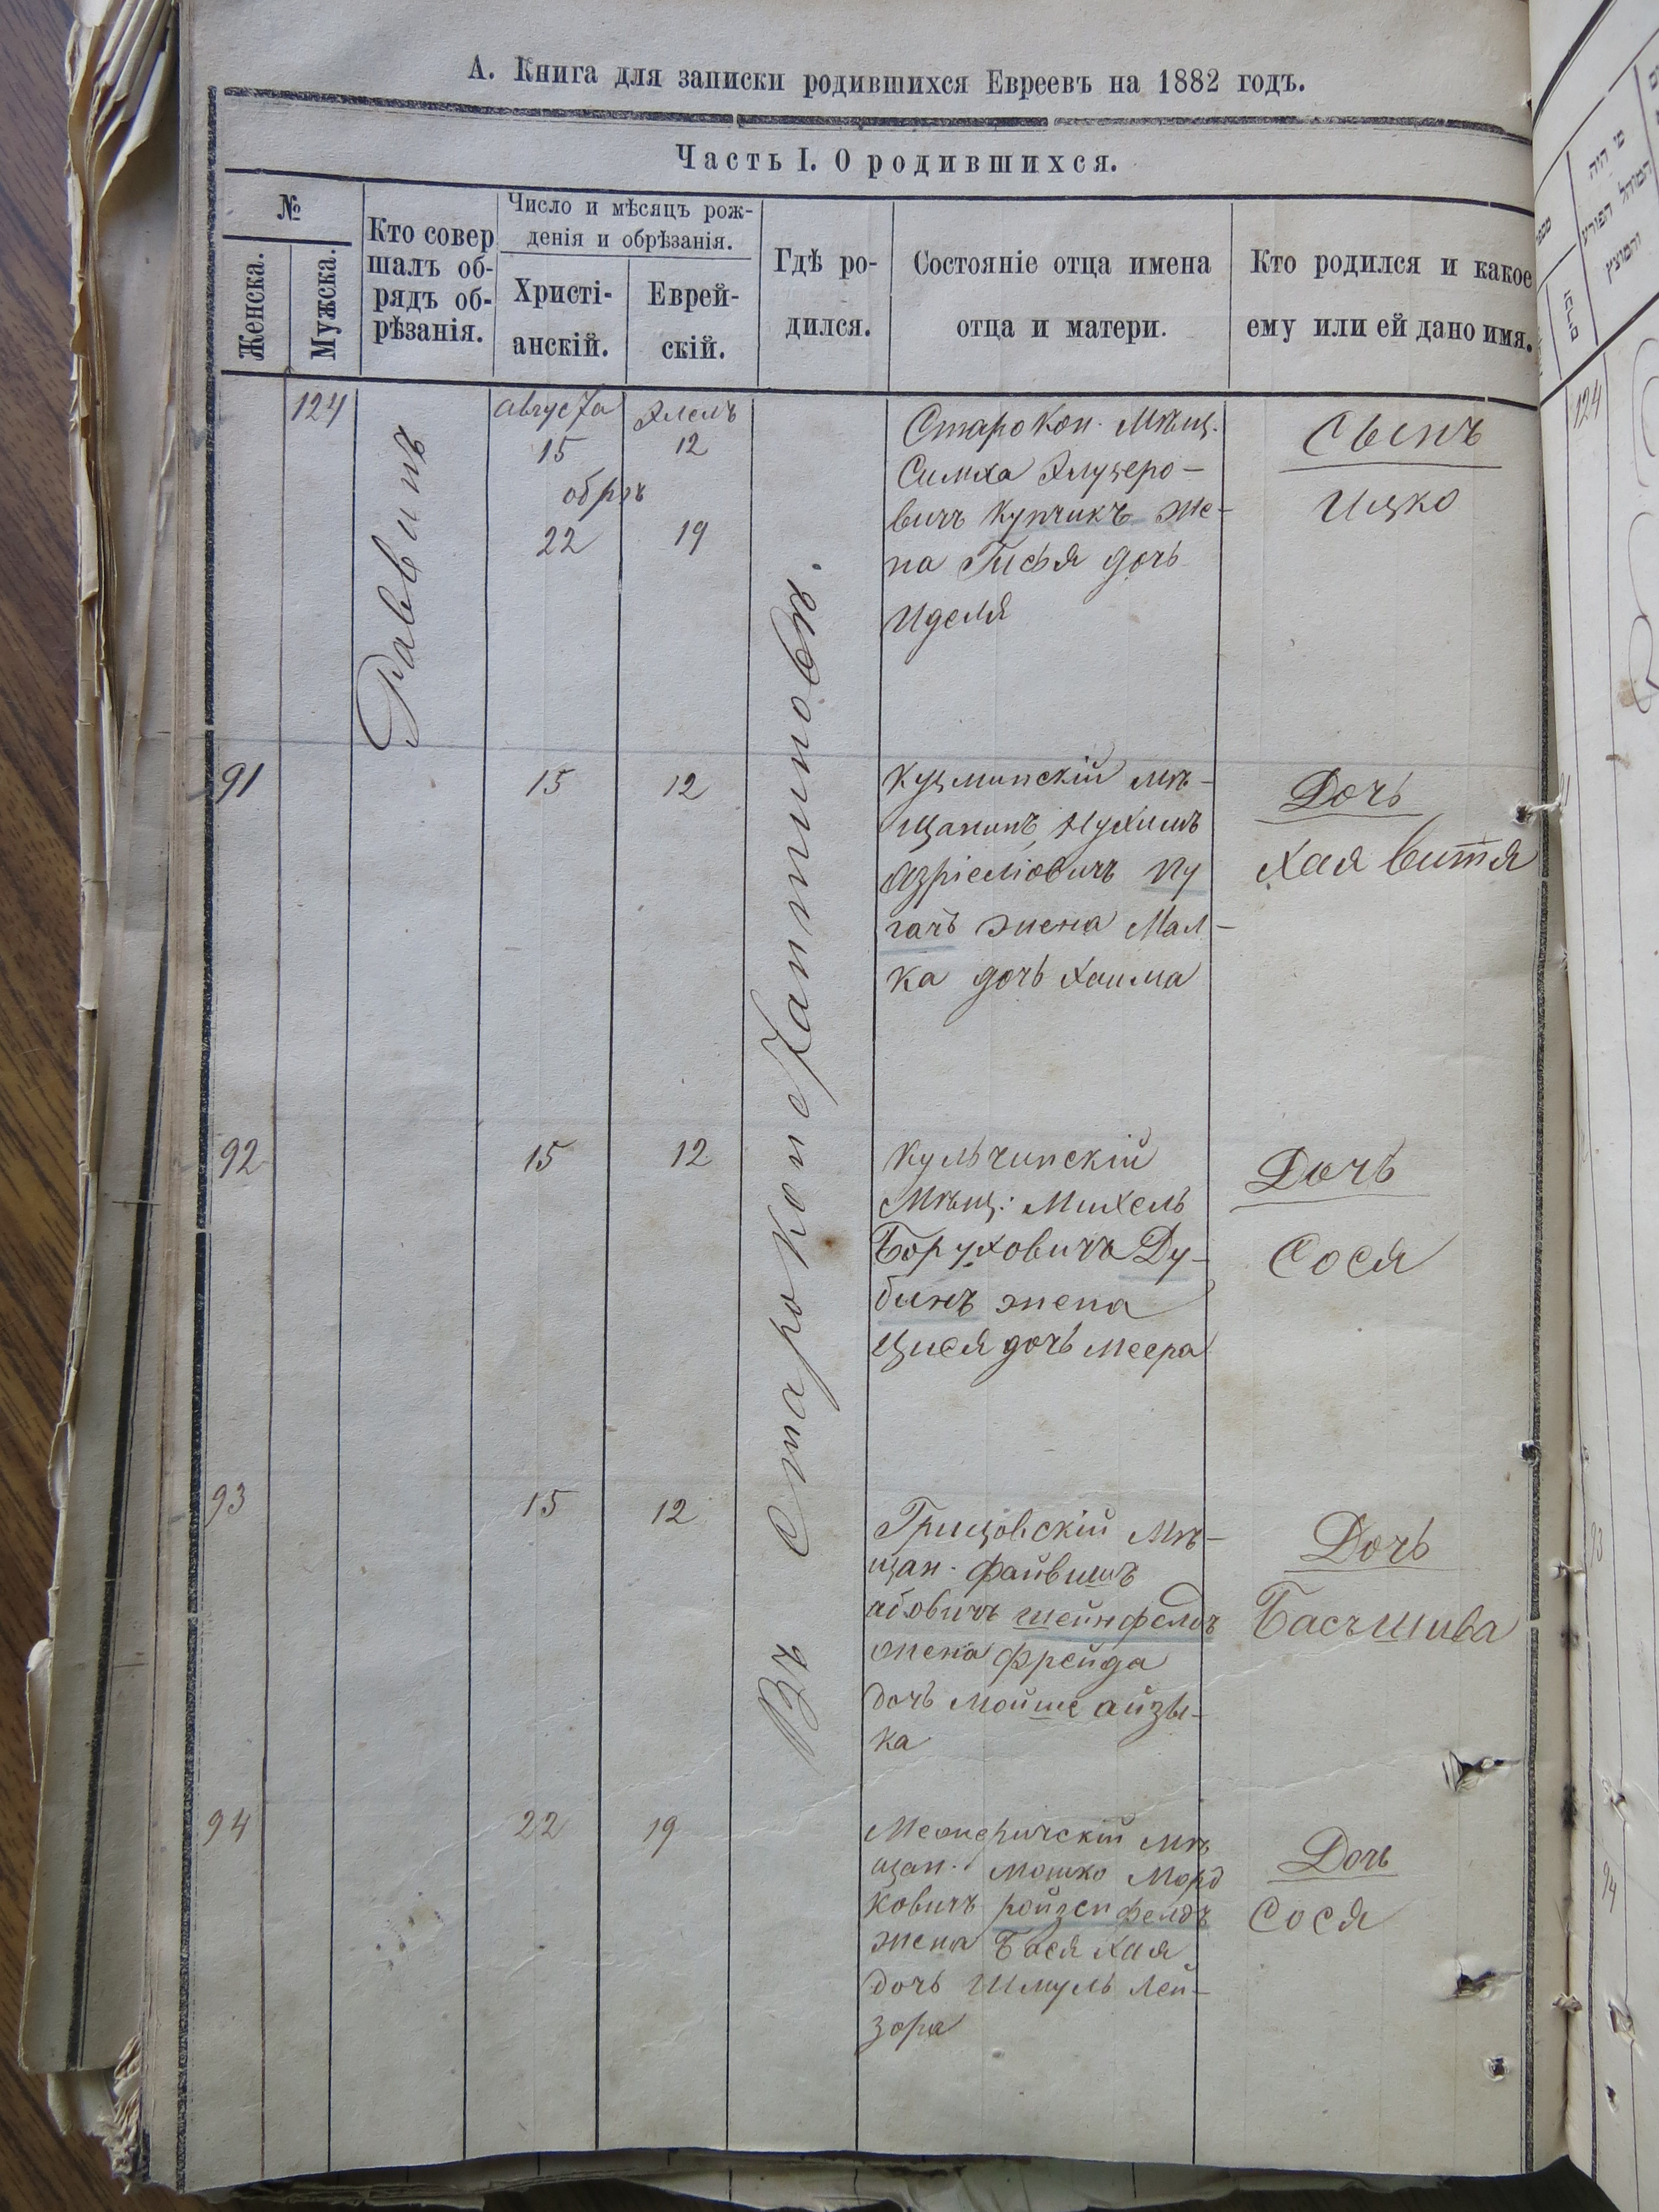 А. Книга для записки родившихся Евреевъ на 1882 годъ.
Часть I. О родившихся.
№
Женска.
Мужска.
Кто совер
шалъ об-
рядъ об-
рѣзанія.
Число и мѣсяцъ рож-
денія и обрѣзанія.
Христі-
анскій.
Еврей-
скій.
Гдѣ ро-
дился.
Состояніе отца имена
отца и матери.
Кто родился и какое
ему или ей дано имя.
124
Раввинъ
Августа
15
обрѣ
22
Элелъ
12
19
Въ Староконстантиновѣ.
Старокон. Мѣщ.
Симха Элузеро-
вичъ Купчикъ же-
на Гисья дочь
Иделя
Сынъ
Ицко
91
15
12
Кузминскій мѣ-
щанинъ Нухимъ
Азріеліовичъ Пу
гачъ жена Мал-
ка дочь Хаима
Дочь
Хая Витя
92
15
12
Кульчинскій
Мѣщ: Михель
Боруховичъ Ду-
бинъ жена
Цися дочь Меера
Дочь
Сося
93
15
12
Грицовскій Мѣ-
щан. Файвишъ
Абовичъ Шейнфелдъ
жена Фрейда
дочь Мойше Айзы-
ка
Дочь
Басъшива
94
22
19
Межеричскій Мѣ
щан. Мошко Морд
ковичъ Ройзенфелдъ
жена Бася Хая
дочь Шмуль Лей-
зора
Дочь
Сося
מי היה
המוהל הפורע
והמוצץ
זכרים
124
93
94